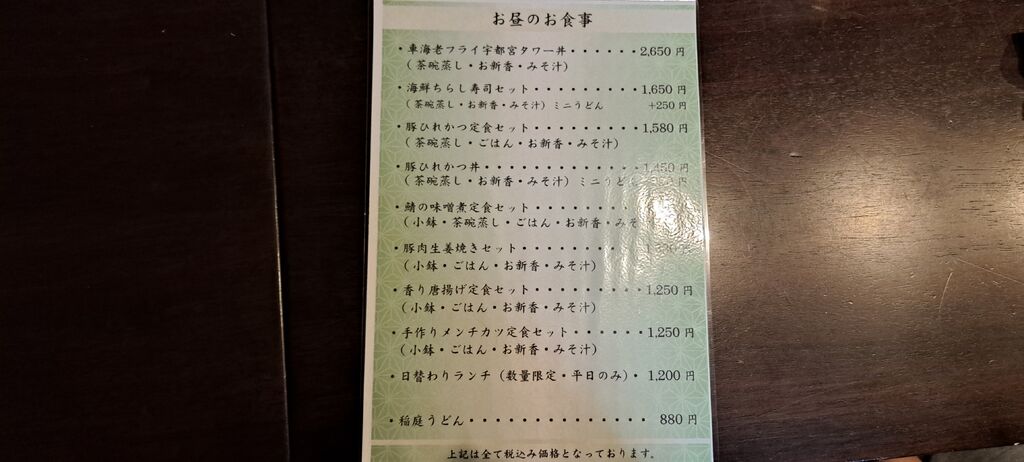 お昼のお食事
・車海老フライ宇都宮タワー丼・・・・・・2,650 円
（茶碗蒸し・お新香・みそ汁）
・海鮮ちらし寿司セット・・・・・・・・・1,650 円
（茶碗蒸し・お新香・みそ汁）ミニうどん +250 円
・豚ひれかつ定食セット・・・・・・・・・1,580 円
（茶碗蒸し・ごはん・お新香・みそ汁）
・豚ひれかつ丼・・・・・・・・・・・・・1,450 円
（茶碗蒸し・お新香・みそ汁）ミニうどん 円
・鯖の味噌煮定食セット・・・・・・・・
（小鉢・茶碗蒸し・ごはん・お新香・みそ
・豚肉生姜焼きセット・・・・・・・・ 円
（小鉢・ごはん・お新香・みそ汁）
・香り唐揚げ定食セット・・・・・・・・・1,250 円
（小鉢・ごはん・お新香・みそ汁）
・手作りメンチカツ定食セット・・・・・・1,250 円
（小鉢・ごはん・お新香・みそ汁）
・日替わりランチ（数量限定・平日のみ）・1,200 円
・稲庭うどん・・・・・・・・・・・・・・・880 円
上記は全て税込み価格となっております。